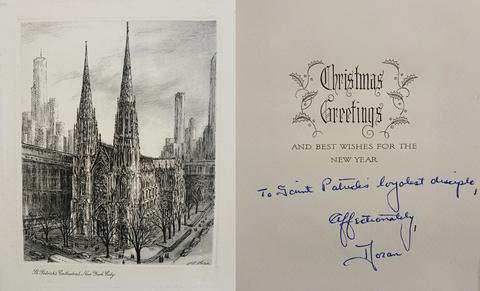 St. Patrick's Cathedral, New York City
Christmas
Greetings
AND BEST WISHES FOR THE
NEW YEAR
To Saint Patrick's loyalest disciple,
Affectionately,
Horan